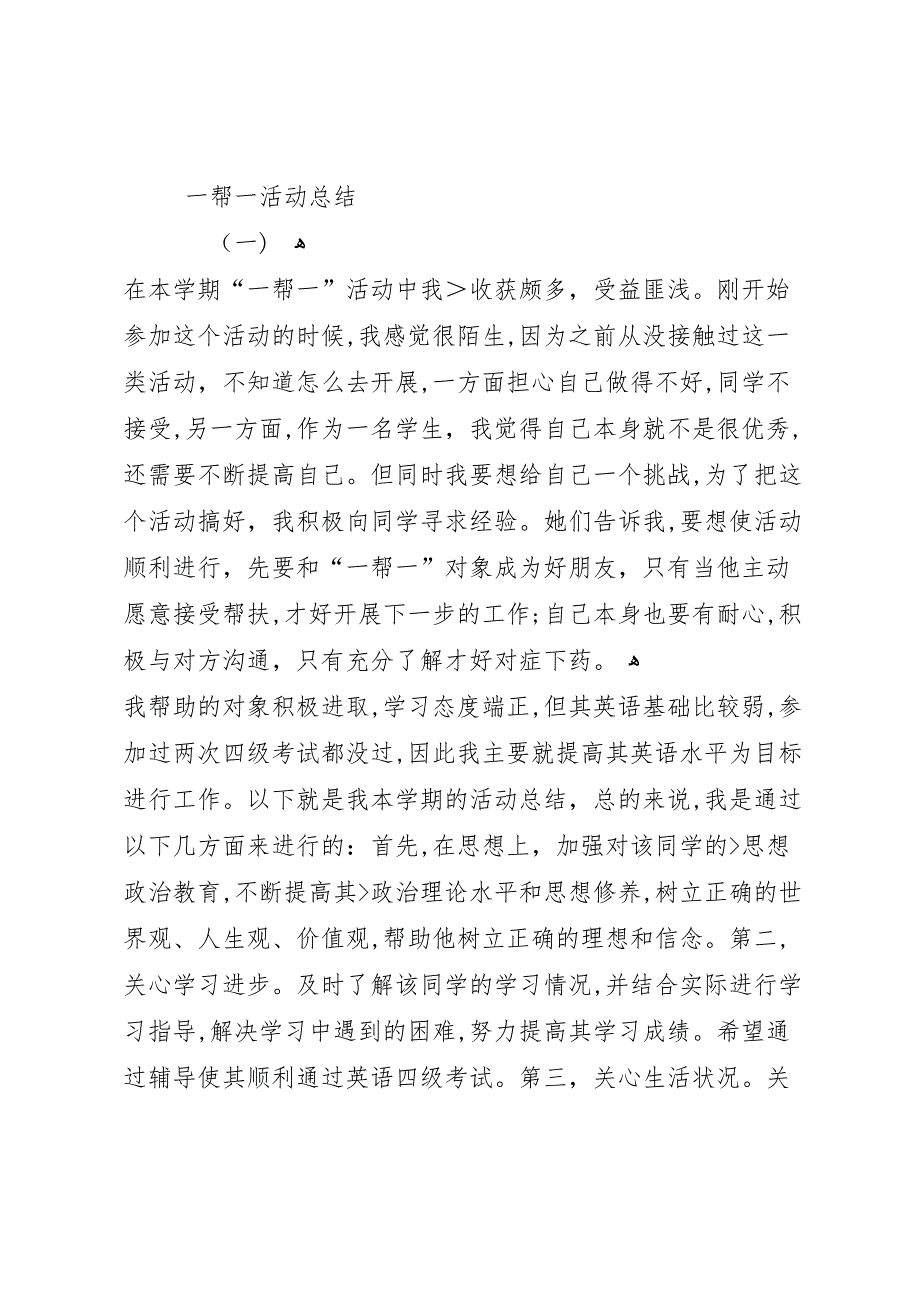 一帮一活动总结
（一) ﻫ
在本学期“一帮一”活动中我＞收获颇多，受益匪浅。刚开始
参加这个活动的时候,我感觉很陌生,因为之前从没接触过这一
类活动，不知道怎么去开展,一方面担心自己做得不好,同学不
接受,另一方面,作为一名学生，我觉得自己本身就不是很优秀,
还需要不断提高自己。但同时我要想给自己一个挑战,为了把这
个活动搞好，我积极向同学寻求经验。她们告诉我,要想使活动
顺利进行，先要和“一帮一”对象成为好朋友，只有当他主动
愿意接受帮扶,才好开展下一步的工作;自己本身也要有耐心,积
极与对方沟通，只有充分了解才好对症下药。 ﻫ
我帮助的对象积极进取,学习态度端正,但其英语基础比较弱,参
加过两次四级考试都没过,因此我主要就提高其英语水平为目标
进行工作。以下就是我本学期的活动总结，总的来说,我是通过
以下几方面来进行的：首先,在思想上，加强对该同学的>思想
政治教育,不断提高其>政治理论水平和思想修养,树立正确的世
界观、人生观、价值观,帮助他树立正确的理想和信念。第二，
关心学习进步。及时了解该同学的学习情况,并结合实际进行学
习指导,解决学习中遇到的困难,努力提高其学习成绩。希望通
过辅导使其顺利通过英语四级考试。第三，关心生活状况。关